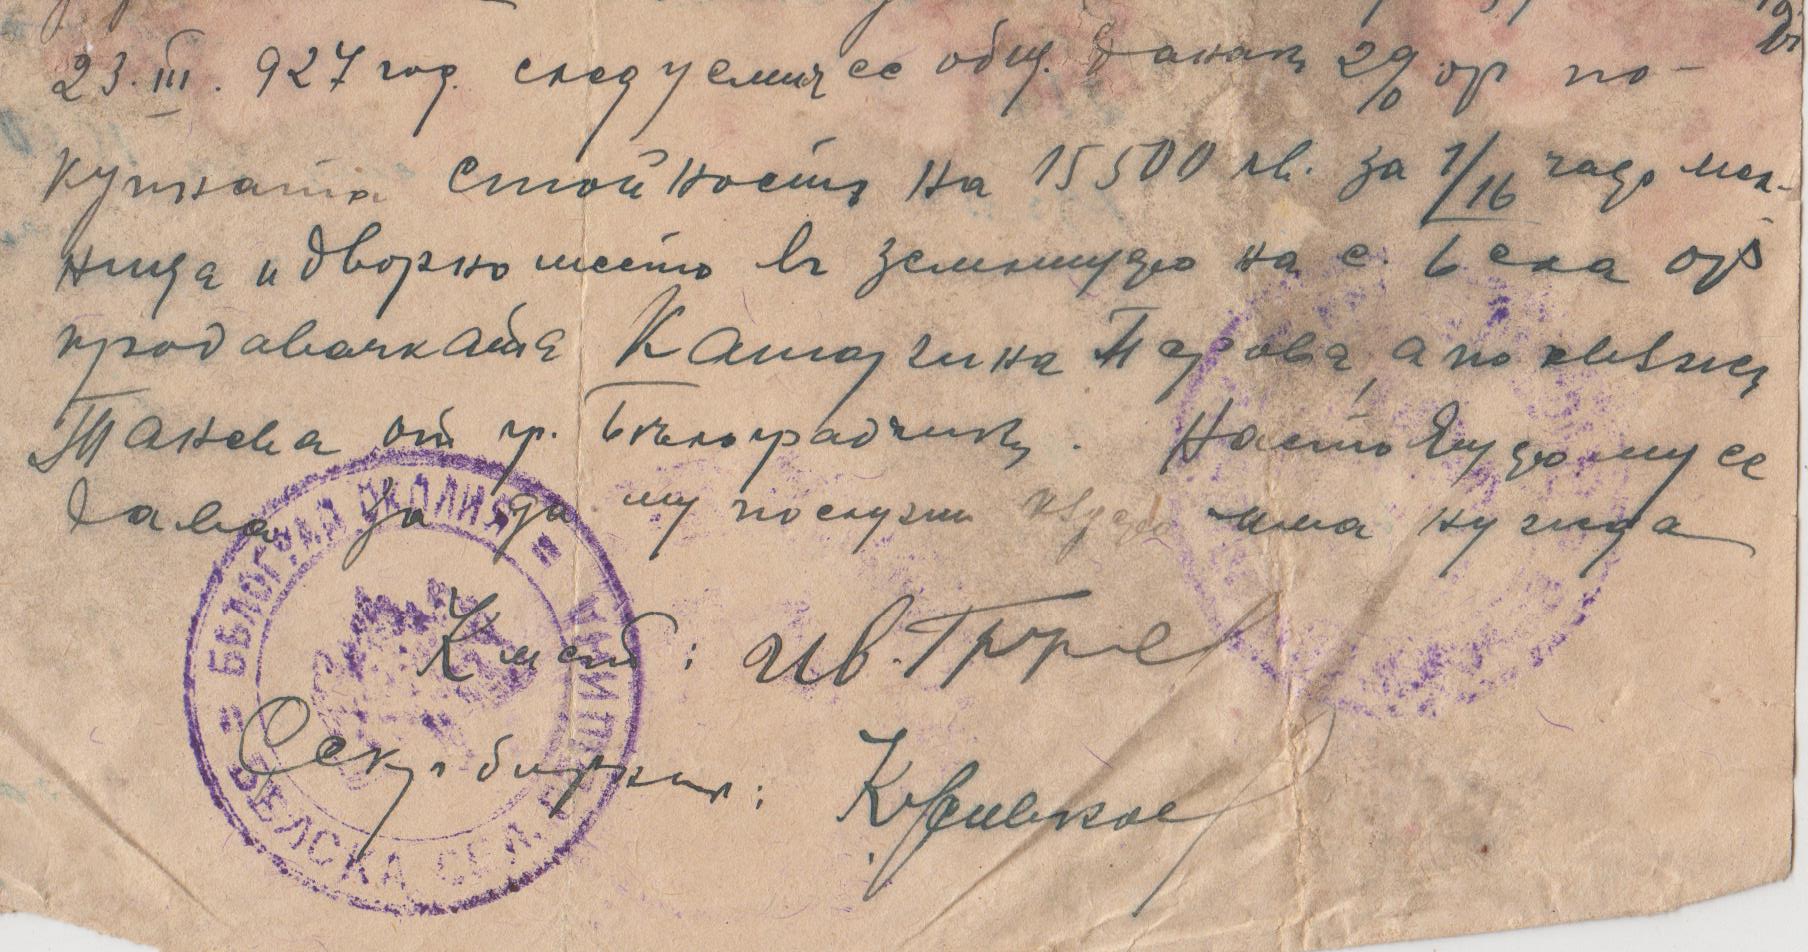 23.III.927 год. следуемиясе общ. данакъ 2% ор по-
купната стойность на 15500 лв. за 1/16 часть мел-
ница и дворно место въ землището на с. Бела отъ
продавачката Катерина Петрова, а по мъжу
Танева от гр. Бѣлоградчикъ. Настоящето му се
дава за да му послужи кѫдето има нужда
Кметъ: Ив.
Секр. бирникъ:
= БѢЛОГРАД. ОКОЛИЯ =
БЕЛСКА СЕЛ. ОБЩИНА